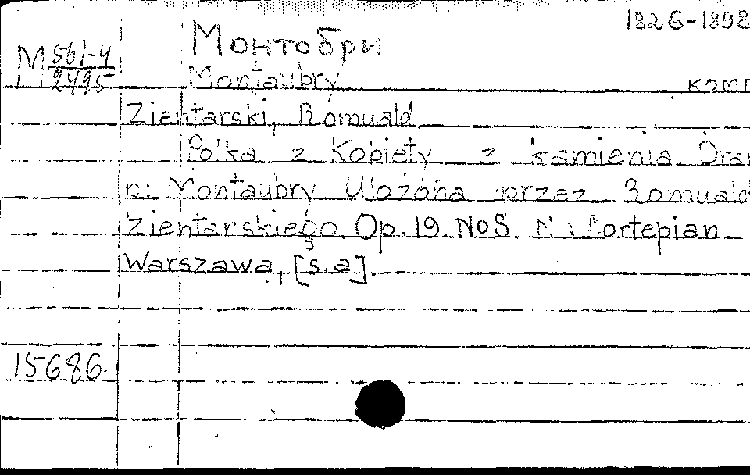 1826-1898
Монтобри
М 561-4
2495
Montaubry комп
Zientarski, Romuald
Polka z Kobiety z kamienia Dra
p. Montaubry Ułożona przez Romuald
Zientarskiego. Op. 19. No5. N. Fortepian
Warszawa, [s.a].
15686